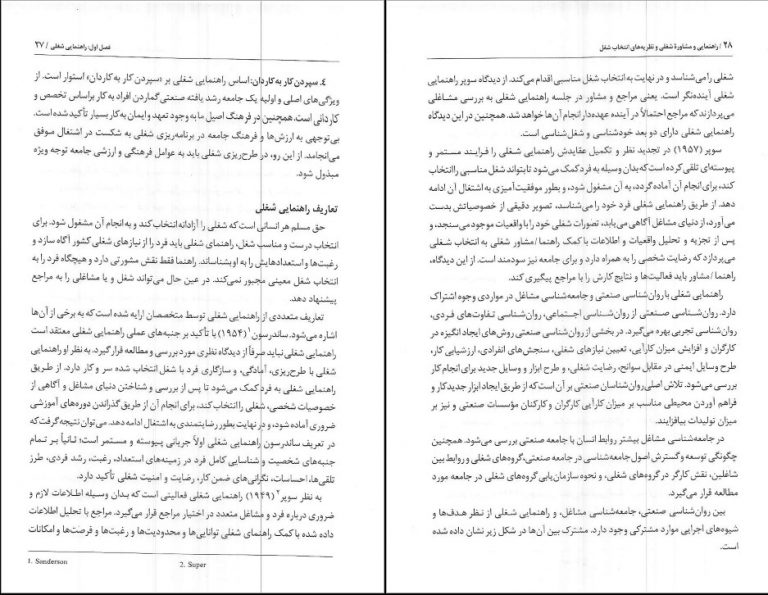 فصل اول: راهنمایی شغلی / ۲۷
۴. سپردن کار به کاردان: اساس راهنمایی شغلی بر «سپردن کار به کاردان» استوار است. از
ویژگی‌های اصلی و اولیه یک جامعه رشد یافته صنعتی گماردن افراد به کار براساس تخصص و
کاردانی است. همچنین در فرهنگ اصیل ما به وجود تعهد و ایمان به کار بسیار تأکید شده است.
بی‌توجهی به ارزش‌ها و فرهنگ جامعه در برنامه‌ریزی شغلی به شکست در اشتغال موفق
می‌انجامد. از این رو، در طرح‌ریزی شغلی باید به عوامل فرهنگی و ارزشی جامعه توجه ویژه
مبذول شود.
تعاریف راهنمایی شغلی
حق مسلم هر انسانی است که شغلی را آزادانه انتخاب کند و به انجام آن مشغول شود. برای
انتخاب درست و مناسب شغل، راهنمای شغلی باید فرد را از نیازهای شغلی کشور آگاه سازد و
رغبت‌ها و استعدادهایش را به او بشناساند. راهنما فقط نقش مشورتی دارد و هیچگاه فرد را به
انتخاب شغل معینی مجبور نمی‌کند. در عین حال می‌تواند شغل و یا مشاغلی را به مراجع
پیشنهاد دهد.
تعاریف متعددی از راهنمایی شغلی توسط متخصصان ارایه شده است که به برخی از آن‌ها
اشاره می‌شود. ساندرسون۱ (۱۹۵۴) با تأکید بر جنبه‌های عملی راهنمایی شغلی معتقد است
راهنمایی شغلی نباید صرفاً از دیدگاه نظری مورد بررسی و مطالعه قرار گیرد. به نظر او راهنمایی
شغلی با طرح‌ریزی، آمادگی، و سازگاری فرد با شغل انتخاب شده سر و کار دارد. از طریق
راهنمایی شغلی به فرد کمک می‌شود تا پس از بررسی و شناختن دنیای مشاغل و آگاهی از
خصوصیات شخصی، شغلی را انتخاب کند، برای انجام آن از طریق گذراندن دوره‌های آموزشی
ضروری آماده شود، و در نهایت بطور رضایتمندی به اشتغال ادامه دهد. می‌توان نتیجه گرفت که
در تعریف ساندرسون راهنمایی شغلی اولاً جریانی پیوسته و مستمر است؛ ثانیاً بر تمام
جنبه‌های شخصیت و شناسایی کامل فرد در زمینه‌های استعداد، رغبت، رشد فردی، طرز
تلقی‌ها، احساسات، نگرانی‌های ضمن کار، رضایت و امنیت شغلی تأکید دارد.
به نظر سوپر۲ (۱۹۴۹) راهنمایی شغلی فعالیتی است که بدان وسیله اطلاعات لازم و
ضروری درباره فرد و مشاغل متعدد در اختیار مراجع قرار می‌گیرد. مراجع با تحلیل اطلاعات
داده شده با کمک راهنمای شغلی توانایی‌ها و محدودیت‌ها و رغبت‌ها و فرصت‌ها و امکانات
1. Sanderson 2. Super
۲۸ / راهنمایی و مشاورهٔ شغلی و نظریه‌های انتخاب شغل
شغلی را می‌شناسد و در نهایت به انتخاب شغل مناسبی اقدام می‌کند. از دیدگاه سوپر راهنمایی
شغلی آینده‌نگر است. یعنی مراجع و مشاور در جلسه راهنمایی شغلی به بررسی مشاغلی
می‌پردازند که مراجع احتمالاً در آینده عهده‌دار انجام آن‌ها خواهد شد. همچنین در این دیدگاه
راهنمایی شغلی دارای دو بعد خودشناسی و شغل‌شناسی است.
سوپر (۱۹۵۷) در تجدید نظر و تکمیل عقایدش راهنمایی شغلی را فرایند مستمر و
پیوسته‌ای تلقی کرده است که بدان وسیله به فرد کمک می‌شود تا بتواند شغل مناسبی را انتخاب
کند، برای انجام آن آماده گردد، به آن مشغول شود، و بطور موفقیت‌آمیزی به اشتغال آن ادامه
دهد. از طریق راهنمایی شغلی فرد خود را می‌شناسد، تصویر دقیقی از خصوصیاتش بدست
می‌آورد، از دنیای مشاغل آگاهی می‌یابد، تصورات شغلی خود را با واقعیات موجود می‌سنجد، و
پس از تجزیه و تحلیل واقعیات و اطلاعات با کمک راهنما/مشاور شغلی به انتخاب شغلی
می‌پردازد که رضایت شخصی را به همراه دارد و برای جامعه نیز سودمند است. از این دیدگاه،
راهنما/مشاور باید فعالیت‌ها و نتایج کارش را با مراجع پیگیری کند.
راهنمایی شغلی با روان‌شناسی صنعتی و جامعه‌شناسی مشاغل در مواردی وجوه اشتراک
دارد. روان‌شناسی صنعتی از روان‌شناسی اجتماعی، روان‌شناسی تفاوت‌های فردی،
روان‌شناسی تجربی بهره می‌گیرد. در بخشی از روان‌شناسی صنعتی روش‌های ایجاد انگیزه در
کارگران و افزایش میزان کارآیی، تعیین نیازهای شغلی، سنجش‌های انفرادی، ارزشیابی کار،
طرح وسایل ایمنی در مقابل سوانح، رضایت شغلی، و طرح ابزار و وسایل جدید برای انجام کار
بررسی می‌شود. تلاش اصلی روان‌شناسان صنعتی بر آن است که از طریق ایجاد ابزار جدید کار و
فراهم آوردن محیطی مناسب بر میزان کارآیی کارگران و کارکنان مؤسسات صنعتی و نیز بر
میزان تولیدات بیافزایند.
در جامعه‌شناسی مشاغل بیشتر روابط انسان با جامعه صنعتی بررسی می‌شود. همچنین
چگونگی توسعه و گسترش اصول جامعه‌شناسی در جامعه صنعتی، گروه‌های شغلی و روابط بین
شاغلین، نقش کارگر در گروه‌های شغلی، و نحوه سازمان‌یابی گروه‌های شغلی در جامعه مورد
مطالعه قرار می‌گیرد.
بین روان‌شناسی صنعتی، جامعه‌شناسی مشاغل، و راهنمایی شغلی از نظر هدف‌ها و
شیوه‌های اجرایی موارد مشترکی وجود دارد. مشترک بین آن‌ها در شکل زیر نشان داده شده
است.